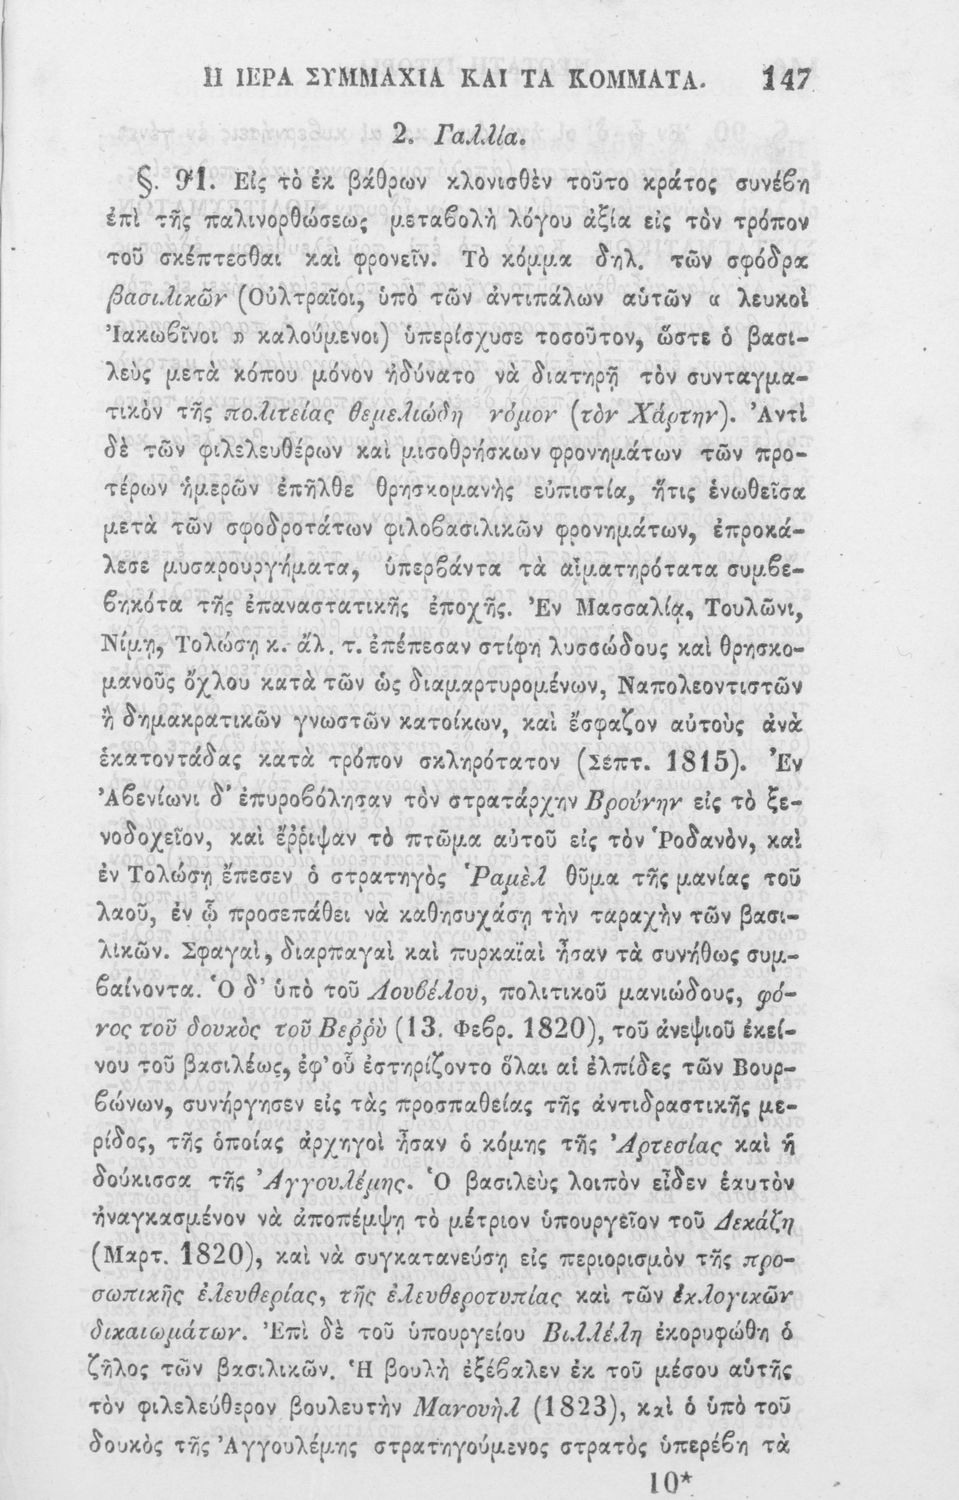 Η ΙΕΡΑ ΣΥΜΜΑΧΙΑ ΚΑΙ ΤΑ ΚΟΜΜΑΤΑ. 147
2. Γαλλία.
§. 91. Εἰς τὸ ἐκ βάθρων κλονισθὲν τοῦτο κράτος συνέβη
ἐπὶ τῆς παλινορθώσεως μεταβολὴ λόγου ἀξία εἰς τὸν τρόπον
τοῦ σκέπτεσθαι καὶ φρονεῖν. Τὸ κόμμα δηλ. τῶν σφόδρα
βασιλικῶν (Οὐλτραῖοι, ὑπὸ τῶν ἀντιπάλων αὐτῶν « λευκοὶ
Ἰακωβῖνοι » καλούμενοι) ὑπερίσχυσε τοσοῦτον, ὥστε ὁ βασι-
λεὺς μετὰ κόπου μόνον ἠδύνατο νὰ διατηρῇ τὸν συνταγμα-
τικὸν τῆς πολιτείας θεμελιώδη νόμον (τὸν Χάρτην). Ἀντὶ
δὲ τῶν φιλελευθέρων καὶ μισοθρήσκων φρονημάτων τῶν προ-
τέρων ἡμερῶν ἐπῆλθε θρησκομανὴς εὐπιστία, ἥτις ἑνωθεῖσα
μετὰ τῶν σφοδροτάτων φιλοβασιλικῶν φρονημάτων, ἐπροκά-
λεσε μυσαρουργήματα, ὑπερβάντα τὰ αἱματηρότατα συμβε-
βηκότα τῆς ἐπαναστατικῆς ἐποχῆς. Ἐν Μασσαλίᾳ, Τουλῶνι,
Νίμῃ, Τολώσῃ κ. ἄλ. τ. ἐπέπεσαν στίφη λυσσώδους καὶ θρησκο-
μανοῦς ὄχλου κατὰ τῶν ὡς διαμαρτυρομένων, Ναπολεοντιστῶν
ἢ δημακρατικῶν γνωστῶν κατοίκων, καὶ ἔσφαζον αὐτοὺς ἀνὰ
ἑκατοντάδας κατὰ τρόπον σκληρότατον (Σεπτ. 1815). Ἐν
Ἀβενίωνι δ' ἐπυροβόλησαν τὸν στρατάρχην Βρούνην εἰς τὸ ξε-
νοδοχεῖον, καὶ ἔῤῥιψαν τὸ πτῶμα αὐτοῦ εἰς τὸν Ῥοδανὸν, καὶ
ἐν Τολώσῃ ἔπεσεν ὁ στρατηγὸς Ῥαμὲλ θῦμα τῆς μανίας τοῦ
λαοῦ, ἐν ᾧ προσεπάθει νὰ καθησυχάσῃ τὴν ταραχὴν τῶν βασι-
λικῶν. Σφαγαὶ, διαρπαγαὶ καὶ πυρκαϊαὶ ἦσαν τὰ συνήθως συμ-
βαίνοντα. Ὁ δ' ὑπὸ τοῦ Λουβέλου, πολιτικοῦ μανιώδους, φό-
νος τοῦ δουκὸς τοῦ Βεῤῥὺ (13. Φεβρ. 1820), τοῦ ἀνεψιοῦ ἐκεί-
νου τοῦ βασιλέως, ἐφ' οὗ ἐστηρίζοντο ὅλαι αἱ ἐλπίδες τῶν Βουρ-
βώνων, συνήργησεν εἰς τὰς προσπαθείας τῆς ἀντιδραστικῆς με-
ρίδος, τῆς ὁποίας ἀρχηγοὶ ἦσαν ὁ κόμης τῆς Ἀρτεσίας καὶ ἡ
δούκισσα τῆς Ἀγγουλέμης. Ὁ βασιλεὺς λοιπὸν εἶδεν ἑαυτὸν
ἠναγκασμένον νὰ ἀποπέμψῃ τὸ μέτριον ὑπουργεῖον τοῦ Δεκάζη
(Μαρτ. 1820), καὶ νὰ συγκατανεύσῃ εἰς περιορισμὸν τῆς προ-
σωπικῆς ἐλευθερίας, τῆς ἐλευθεροτυπίας καὶ τῶν ἐκλογικῶν
δικαιωμάτων. Ἐπὶ δὲ τοῦ ὑπουργείου Βιλλέλη ἐκορυφώθη ὁ
ζῆλος τῶν βασιλικῶν. Ἡ βουλὴ ἐξέβαλεν ἐκ τοῦ μέσου αὑτῆς
τὸν φιλελεύθερον βουλευτὴν Μανουὴλ (1823), καὶ ὁ ὑπὸ τοῦ
δουκὸς τῆς Ἀγγουλέμης στρατηγούμενος στρατὸς ὑπερέβη τὰ
10*